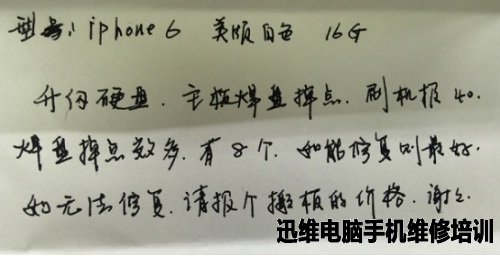 型号: iphone 6 美版白色 16G
升级硬盘. 主板焊盘掉点. 刷机报 40.
焊盘掉点数多. 有 8 个. 如能修复则最好.
如无法修复. 请报个搬板的价格. 谢谢.
迅维电脑手机维修培训